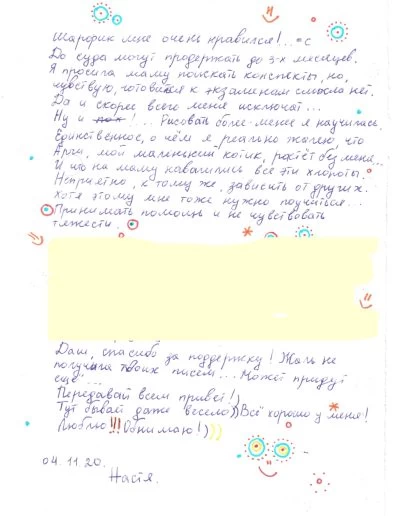 Шарфик мне очень нравился!.. =с
До суда могут продержать до 3-х месяцев.
Я просила маму поискать конспекты, но,
чувствую, готовиться к экзаменам смысла нет.
Да и скорее всего меня исключат...
Ну и пох!... Рисовать более-менее я научилась.
Единственное, о чём я реально жалею, что
Арчи, мой маленький котик, растёт без меня...
И что на маму навалились все эти хлопоты.
Неприятно, к тому же, зависить от других.
Хотя этому мне тоже нужно поучиться...
Принимать помощь и не чувствовать
тяжести.
Даш, спасибо за поддержку! Жаль не
получила твоих писем... Может придут
ещё...
Передавай всем привет!)
Тут бывает даже весело)) Всё хорошо у меня!
Люблю!!! Обнимаю!)))
04.11.20.
Настя.